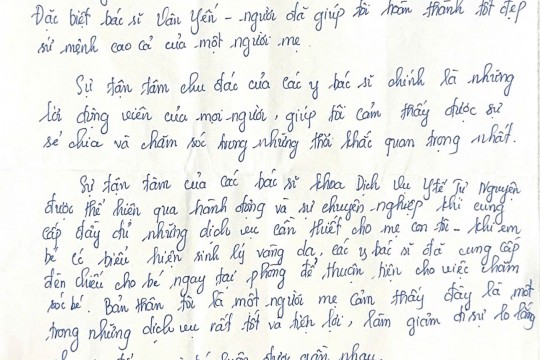 Đặc biệt bác sĩ Vân Yến - người đã giúp tôi hoàn thành tốt đẹp
sứ mệnh cao cả của một người mẹ.
Sự tận tâm chu đáo của các y bác sĩ chính là những
lời động viên của mọi người, giúp tôi cảm thấy được sự
sẻ chia và chăm sóc trong những thời khắc quan trọng nhất.
Sự tận tâm của các bác sĩ khoa Dịch Vụ Y Tế Tự Nguyện
được thể hiện qua hành động và sự chuyên nghiệp khi cung
cấp đầy đủ những dịch vụ cần thiết cho mẹ con tôi - khi em
bé có biểu hiện sinh lý vàng da, các y bác sĩ đã cung cấp
đèn chiếu cho bé ngay tại phòng để thuận tiện cho việc chăm
sóc bé. Bản thân tôi là một người mẹ cảm thấy đây là một
trong những dịch vụ rất tốt và tiện lợi, làm giảm đi sự lo lắng
được gần nhau.